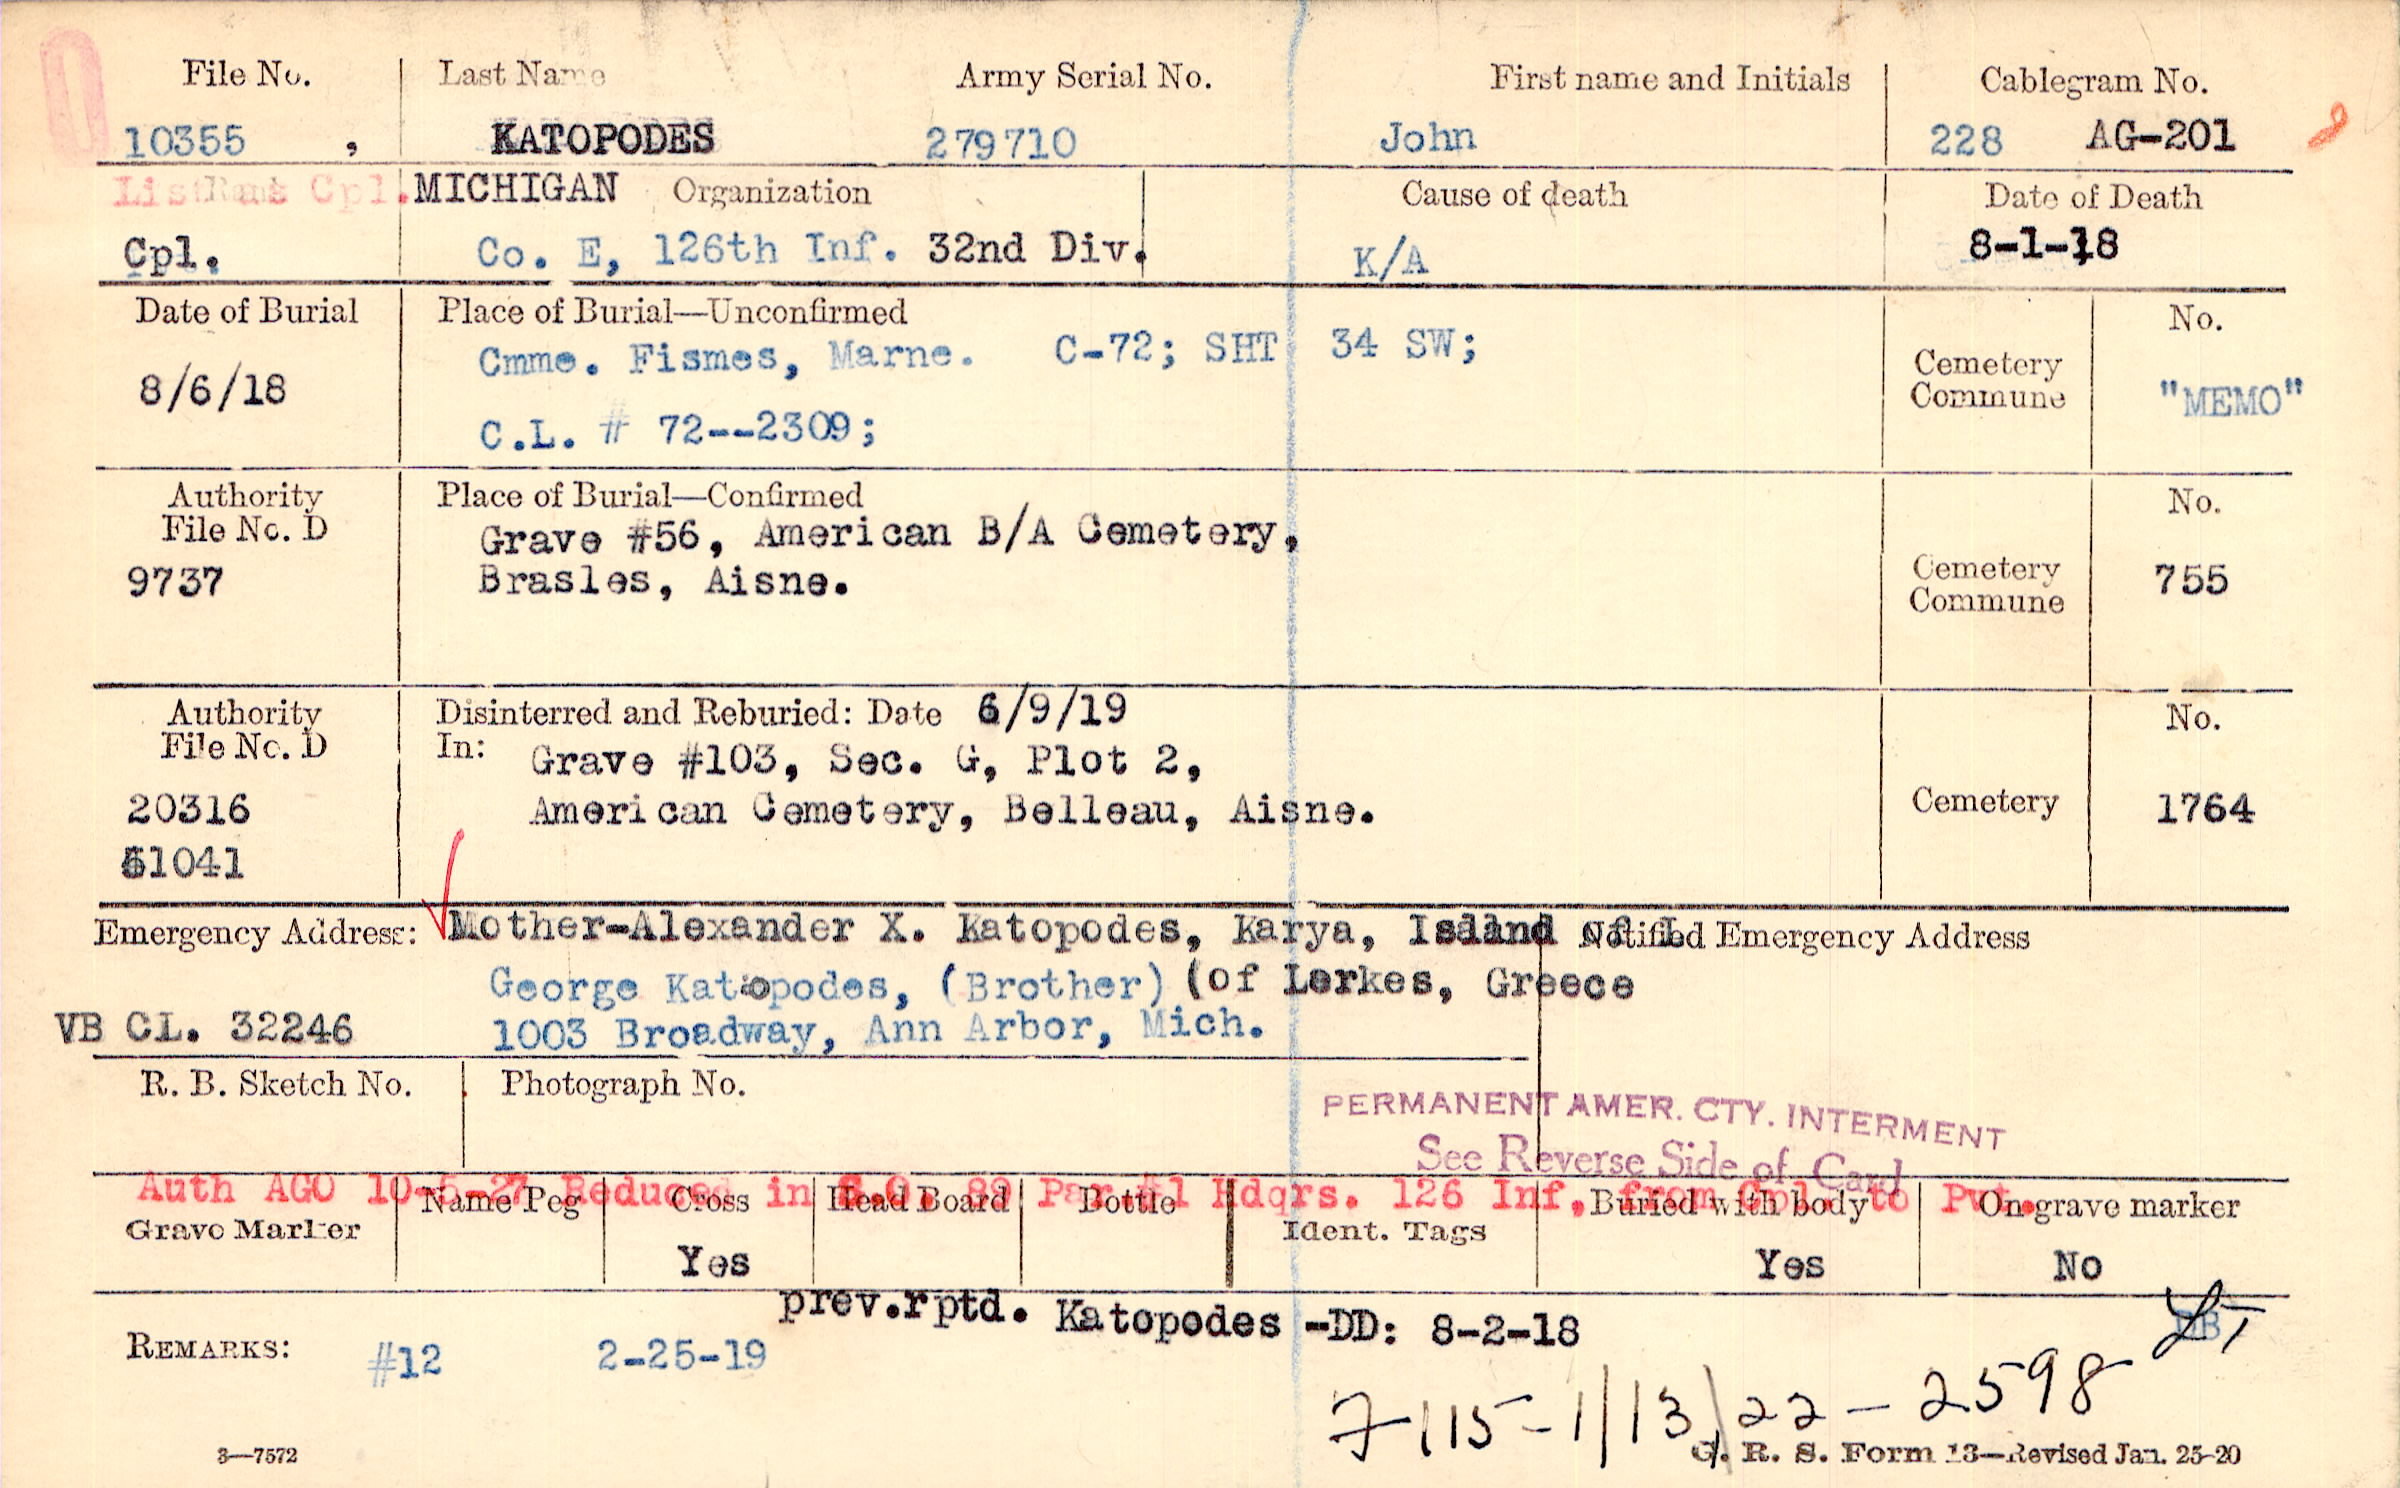 File No. Last Name Army Serial No. First name and Initials Cablegram No.
10355 , KATOPODES 279710 John 228 AG-201
List as Cpl. Rank MICHIGAN Organization Cause of death Date of Death
Cpl. Co. E, 126th Inf. 32nd Div. K/A 8-1-18
Date of Burial Place of Burial—Unconfirmed No.
8/6/18 Cmme. Fismes, Marne. C-72; SHT 34 SW; Cemetery Commune "MEMO"
C.L. # 72--2309;
Authority Place of Burial—Confirmed No.
File No. D Grave #56, American B/A Cemetery,
9737 Brasles, Aisne. Cemetery Commune 755
Authority Disinterred and Reburied: Date 6/9/19 No.
File No. D In: Grave #103, Sec. G, Plot 2,
20316 American Cemetery, Belleau, Aisne. Cemetery 1764
51041
Emergency Address: Mother-Alexander X. Katopodes, Karya, Island of L Notified Emergency Address
George Katopodes, (Brother) (of Lerkes, Greece
VB CL. 32246 1003 Broadway, Ann Arbor, Mich.
R. B. Sketch No. Photograph No.
PERMANENT AMER. CTY. INTERMENT
See Reverse Side of Card
Auth AGO 10-5-27 Reduced in S.O. 89 Par #1 Hdqrs. 126 Inf, from Cpl. to Pvt.
Grave Marker Name Peg Cross Head Board Bottle Ident. Tags Buried with body On grave marker
Yes Yes No
prev.rptd. Katopodes -DD: 8-2-18
REMARKS: #12 2-25-19
7115-1/13/22-2598
3—7572 G. R. S. Form 13—Revised Jan. 25-20